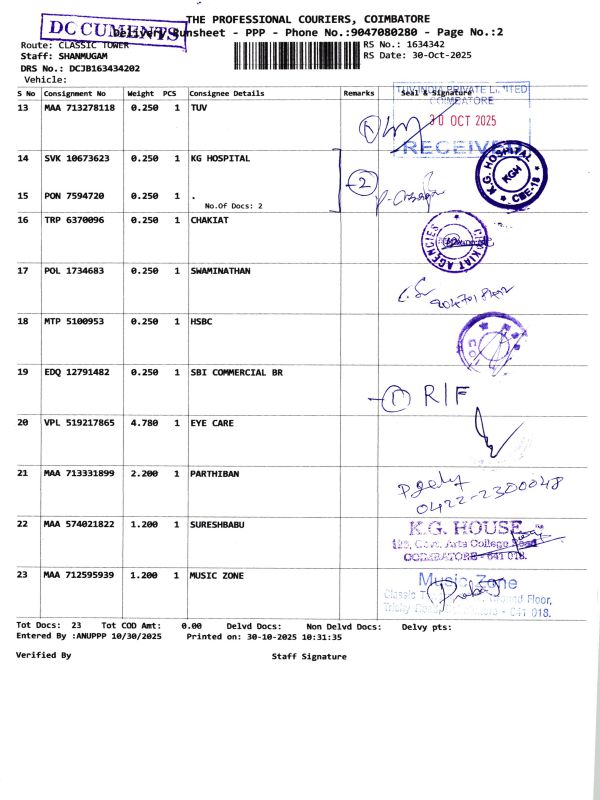 THE PROFESSIONAL COURIERS, COIMBATORE
DOCUMENTS
Delivery Runsheet - PPP - Phone No.:9047080280 - Page No.:2
Route: CLASSIC TOWER
RS No.: 1634342
Staff: SHANMUGAM
RS Date: 30-Oct-2025
DRS No.: DCJB163434202
Vehicle:
S No Consignment No Weight PCS Consignee Details Remarks Seal & Signature
TUV INDIA PRIVATE LIMITED
COIMBATORE
13 MAA 713278118 0.250 1 TUV
1
30 OCT 2025
RECEIVED
14 SVK 10673623 0.250 1 KG HOSPITAL
K.G. HOSPITAL
KGH
CBE-18
2
15 PON 7594720 0.250 1 .
No.Of Docs: 2
16 TRP 6370096 0.250 1 CHAKIAT
CHAKIAT AGENCIES
17 POL 1734683 0.250 1 SWAMINATHAN
18 MTP 5100953 0.250 1 HSBC
19 EDQ 12791482 0.250 1 SBI COMMERCIAL BR
1 R/F
20 VPL 519217865 4.780 1 EYE CARE
21 MAA 713331899 2.200 1 PARTHIBAN
0422-2300048
22 MAA 574021822 1.200 1 SURESHBABU
K.G. HOUSE
Govt. Arts College Road
COIMBATORE - 641 018.
23 MAA 712595939 1.200 1 MUSIC ZONE
Music Zone
Classic Ground Floor,
Trichy Road, - 641 018.
Tot Docs: 23 Tot COD Amt: 0.00 Delvd Docs: Non Delvd Docs: Delvy pts:
Entered By :ANUPPP 10/30/2025 Printed on: 30-10-2025 10:31:35
Verified By Staff Signature